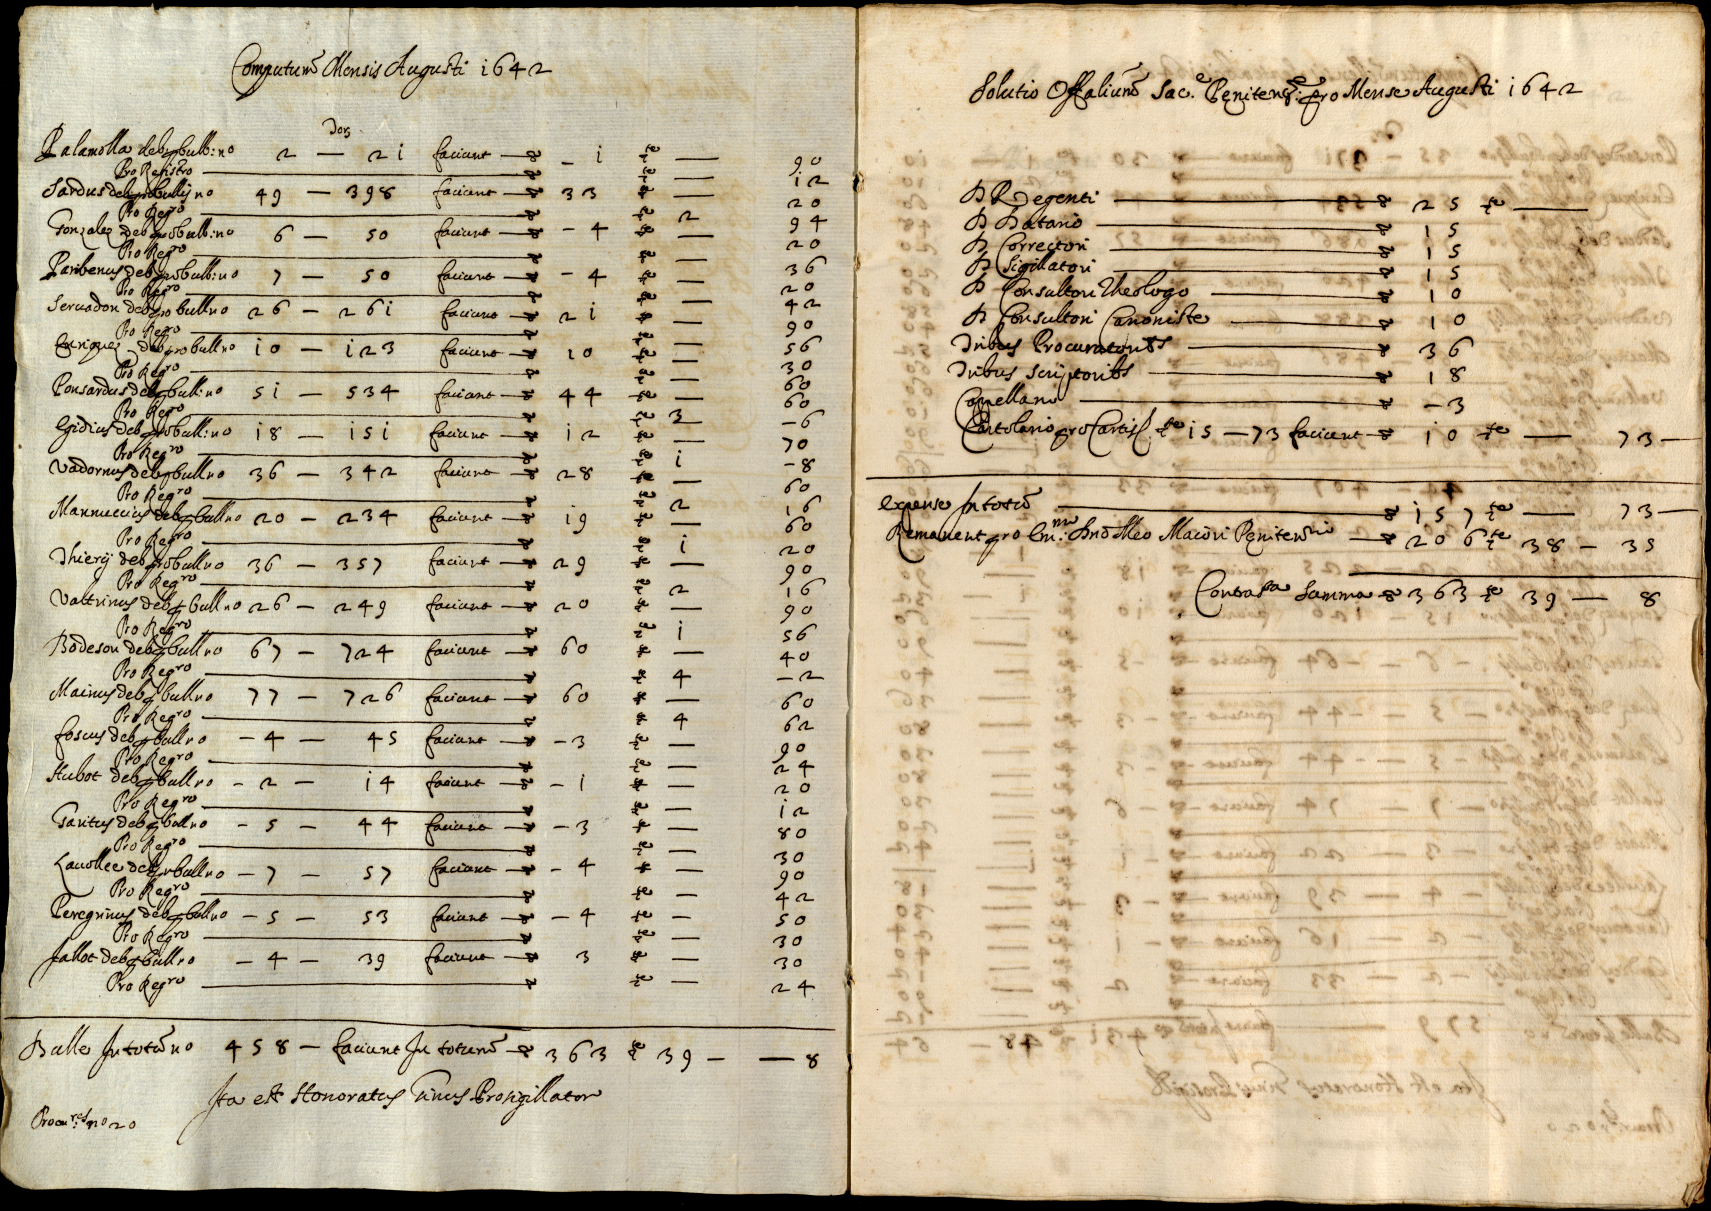 Computum Mensis Augusti 1642
Palamolla deb. pro bull. no 2 — 21 faciunt — ▽ — 1 — 90
Pro Registro — 12
Sardus deb. pro bull. no 49 — 398 faciunt — ▽ 33 — 20
Pro Regro — 2 94
Gonzalez deb. pro bull. no 6 — 50 faciunt — ▽ — 4 — 20
Pro Regro — 36
Paribenus deb. pro bull. no 7 — 50 faciunt — ▽ — 4 — 20
Pro Regro — 42
Seruadon deb. pro bull no 26 — 261 faciunt — ▽ 21 — 90
Pro Regro — 56
Enriquez deb. pro bull no 10 — 123 faciunt — ▽ 10 — 30
Pro Regro — 60
Ponsardus deb. pro bull. no 51 — 534 faciunt — ▽ 44 — 60
Pro Regro — 3 — 6
Egidius deb. pro bull. no 18 — 151 faciunt — ▽ 12 — 70
Pro Regro — 1 — 8
Vadornus deb. p bull no 36 — 342 faciunt — ▽ 28 — 60
Pro Regro — 2 16
Mannuccius deb. p bull no 20 — 234 faciunt — ▽ 19 — 60
Pro Regro — 1 20
Thierij deb. pro bull no 36 — 357 faciunt — ▽ 29 — 90
Pro Regro — 2 16
Valtrinus deb. p bull no 26 — 249 faciunt — ▽ 20 — 90
Pro Regro — 1 56
Bodeson deb. p bull no 67 — 724 faciunt — ▽ 60 — 40
Pro Regro — 4 — 2
Mainus deb. p bull no 77 — 726 faciunt — ▽ 60 — 60
Pro Regro — 4 62
foscus deb. p bull no — 4 — 45 faciunt — ▽ — 3 — 90
Pro Regro — 24
Hubot deb. p bull no — 2 — 14 faciunt — ▽ — 1 — 20
Pro Regro — 12
Garitus deb. p bull no — 5 — 44 faciunt — ▽ — 3 — 80
Pro Regro — 30
Lauollee deb. p bull no — 7 — 57 faciunt — ▽ — 4 — 90
Pro Regro — 42
Peregrinus deb. p bull no — 5 — 53 faciunt — ▽ — 4 — 50
Pro Regro — 30
Jallot deb. p bull no — 4 — 39 faciunt — ▽ 3 — 30
Pro Regro — 24
Bulle In totū no 458 — faciunt In totum — ▽ 363 39 — — 8
Ita est Honoratus Prosigillator
Procu.res no 20
Solutio Offalium Sac.e Peniten. pro Mense Augusti 1642
D Regenti — ▽ 25 —
D Datario — ▽ 15
D Correctori — ▽ 15
D Sigillatori — ▽ 15
D Consultori Theologo — ▽ 10
D Consultori Canoniste — ▽ 10
Tribus Procuratoribs — ▽ 36
Tribus Scriptoribs — ▽ 18
Capellano — ▽ — 3
Cartolario pro Cartis 15 — 73 faciunt — ▽ 10 — 73 —
Expense In totū — ▽ 157 — 73 —
Remanent pro Em.mo Dno Meo Maiori Peniten.rio — ▽ 206 38 — 35
Contra.ta Summa ▽ 363 39 — 8